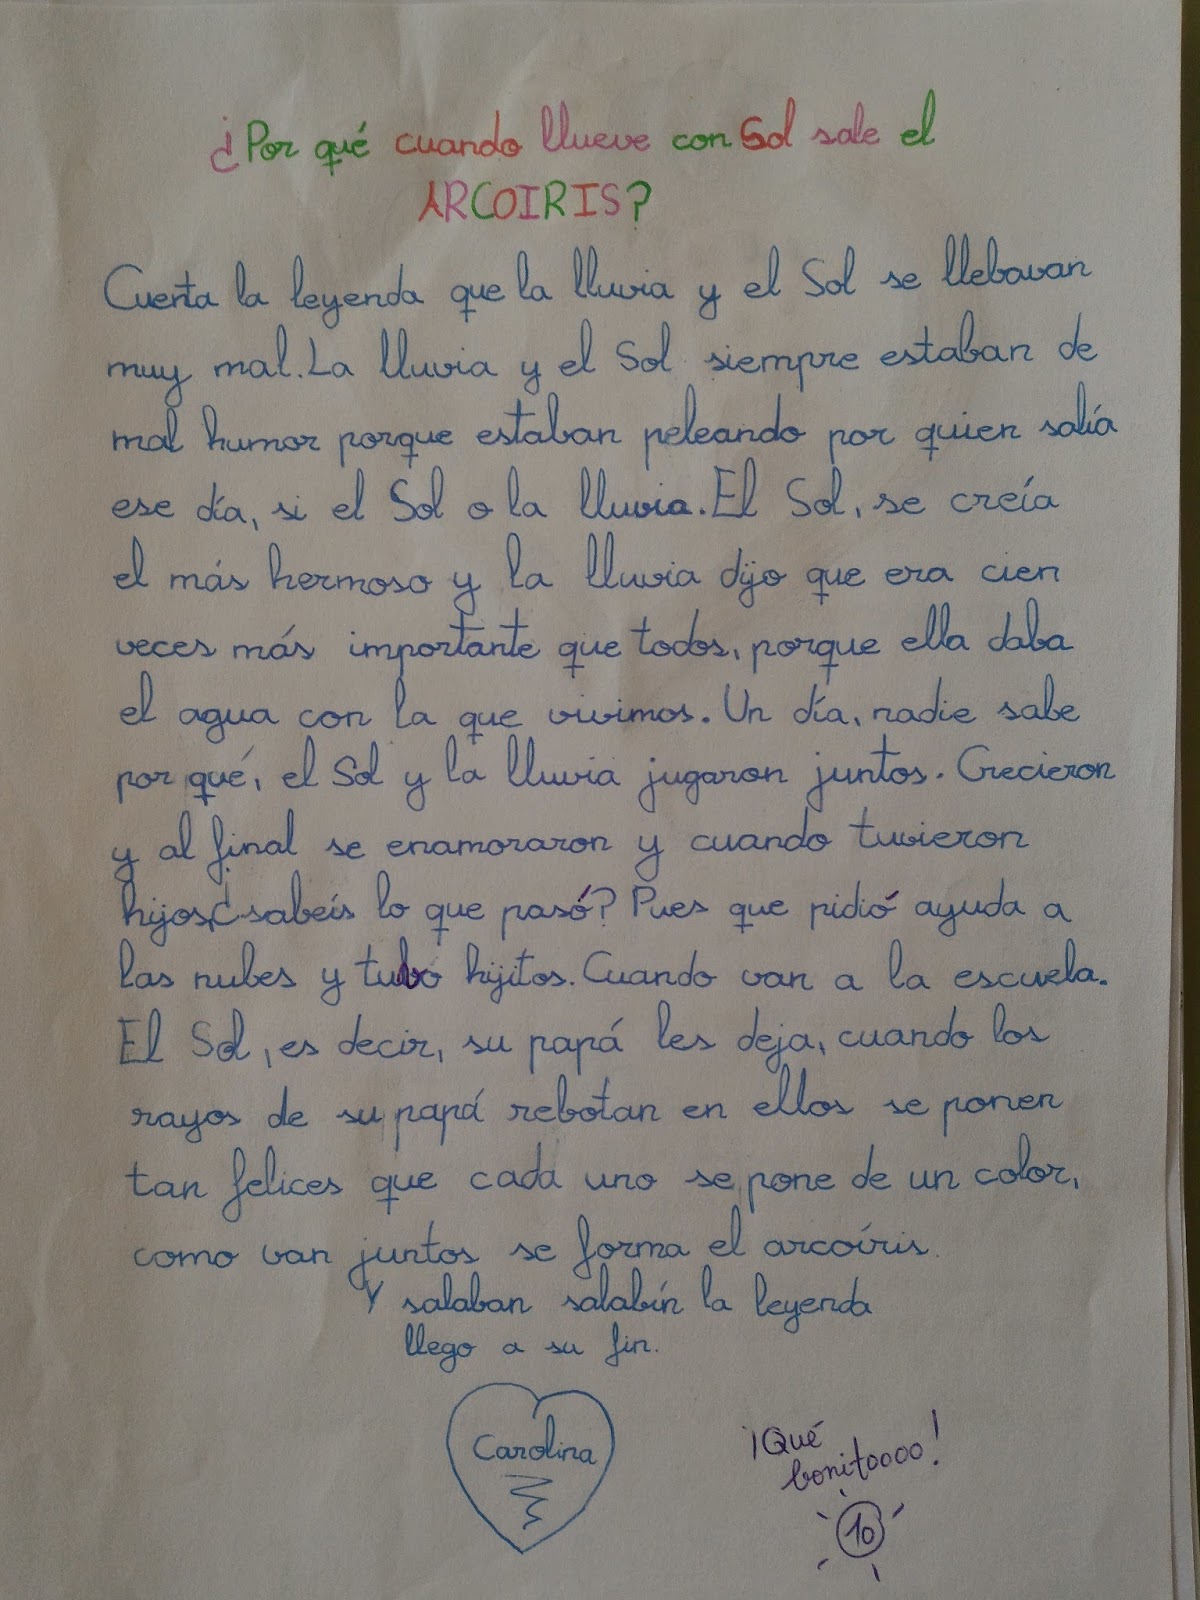 ¿Por qué cuando llueve con Sol sale el
ARCOIRIS?
Cuenta la leyenda que la lluvia y el Sol se llebavan
muy mal. La lluvia y el Sol siempre estaban de
mal humor porque estaban peleando por quien salía
ese día, si el Sol o la lluvia. El Sol, se creía
el más hermoso y la lluvia dijo que era cien
veces más importante que todos, porque ella daba
el agua con la que vivimos. Un día, nadie sabe
por qué, el Sol y la lluvia jugaron juntos. Crecieron
y al final se enamoraron y cuando tuvieron
hijos, ¿sabeís lo que pasó? Pues que pidió ayuda a
las nubes y tubo hijitos. Cuando van a la escuela.
El Sol, es decir, su papá les deja, cuando los
rayos de su papá rebotan en ellos se ponen
tan felices que cada uno se pone de un color,
como van juntos se forma el arcoíris.
Y salaban salabín la leyenda
llego a su fin.
Carolina
¡Qué
bonitoooo!
10